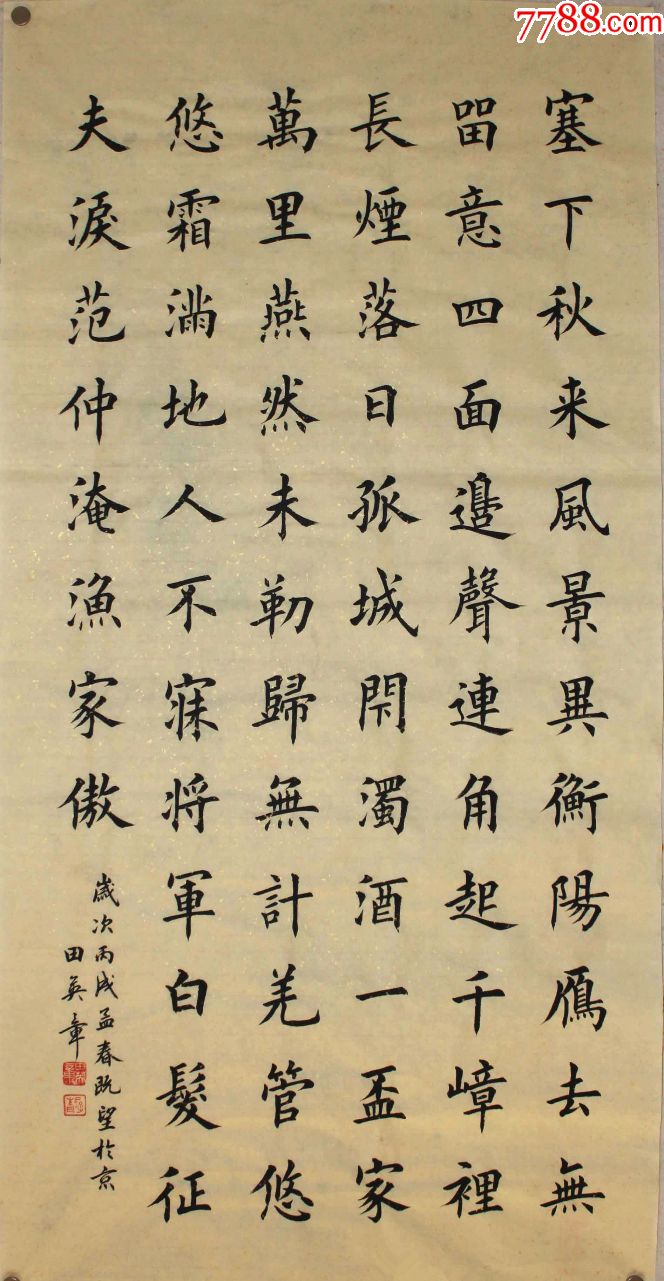 7788.com
塞下秋来風景異衡陽鴈去無
畱意四面邉聲連角起千嶂裡
長煙落日孤城閇濁酒一盃家
萬里燕然未勒歸無計羌管悠
悠霜満地人不寐将軍白髮征
夫淚范仲淹漁家傲
歲次丙戌孟春既望於京
田英章